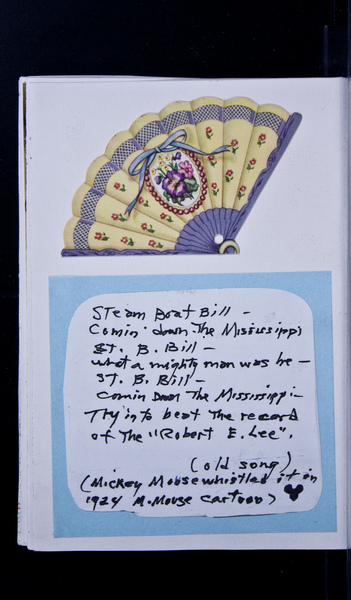 Steam Boat Bill —
Comin' down The Mississippi
ST. B. Bill —
what a mighty man was he —
ST. B. Bill —
comin Down The Mississippi —
Try into beat the record
of The "Robert E. Lee".
(old song)
(Mickey Mouse whistled it in
1924 M. Mouse cartoon)